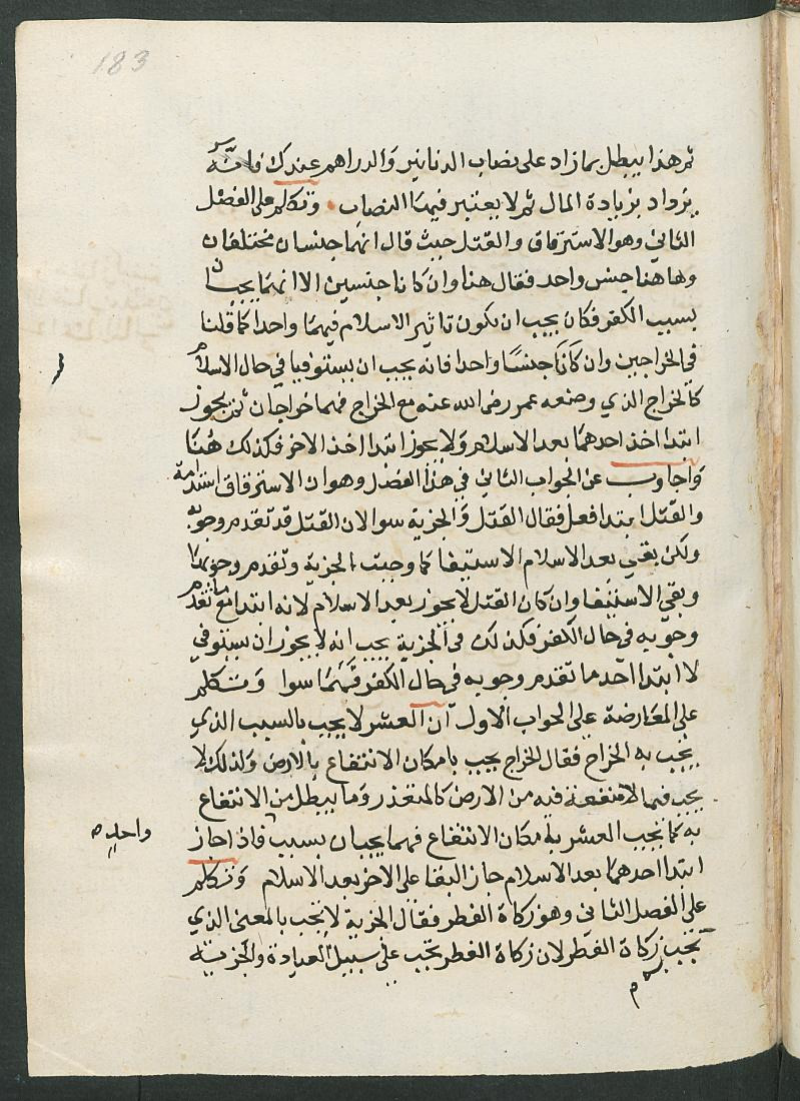 183
ثم هذا يبطل بما زاد على نصاب الدنانير والدراهم عندك فانه
يزداد بزيادة المال ثم لا يعتبر فيها النصاب وتكلم على الفصل
الثاني وهو الاسترقاق والقتل حيث قال انهما جنسان مختلفان
وها هنا جنس واحد فقال هنا وان كانا جنسين الا انهما يجبان
بسبب الكفر فكان يجب ان يكون تاثير الاسلام فيهما واحدا كما قلنا
في الخراجين وان كانا جنسا واحدا فانه يجب ان يستوفيا في حال الاسلام
كالخراج الذي وضعه عمر رضى الله عنه مع الخراج فهما خراجان ثم يجوز
ابتدا اخذ احدهما بعد الاسلام ولا يجوز ابتدا اخذ الاخر فكذلك هنا
واجاب عن الجواب الثاني في هذا الفصل وهو ان الاسترقاق استدامة
والقتل ابتدا فعل فقال القتل والجزية سوا لان القتل قد تقدم وجوبه
ولكن بقي بعد الاسلام الاستيفا كما وجبت الجزية وتقدم وجوبها
وبقي الاستيفا وان كان القتل لا يجوز بعد الاسلام لانه ابتدا مع تقدم
وجوبه في حال الكفر فكذلك في الجزية يجب انه لا يجوز ان يستوفي
لا ابتدا احد ما تقدم وجوبه في حال الكفر فهما سوا وتكلم
على المعارضة على الجواب الاول ان العشر لا يجب بالسبب الذي
يجب به الخراج فقال الخراج يجب بامكان الانتفاع بالارض ولذلك لا
يجب فيما لا منفعة فيه من الارض كالمتعذر وما يبطل من الانتفاع
به كما يجب العشر بامكان الانتفاع فهما يجبان بسبب فاذا جاز
واحد ه
ابتدا احدهما بعد الاسلام جاز البقا على الاخر بعد الاسلام وتكلم
على الفصل الثاني وهو زكاة الفطر فقال الجزية لا تجب بالمعنى الذي
تجب زكاة الفطر لان زكاة الفطر تجب على سبيل العبادة والجزية